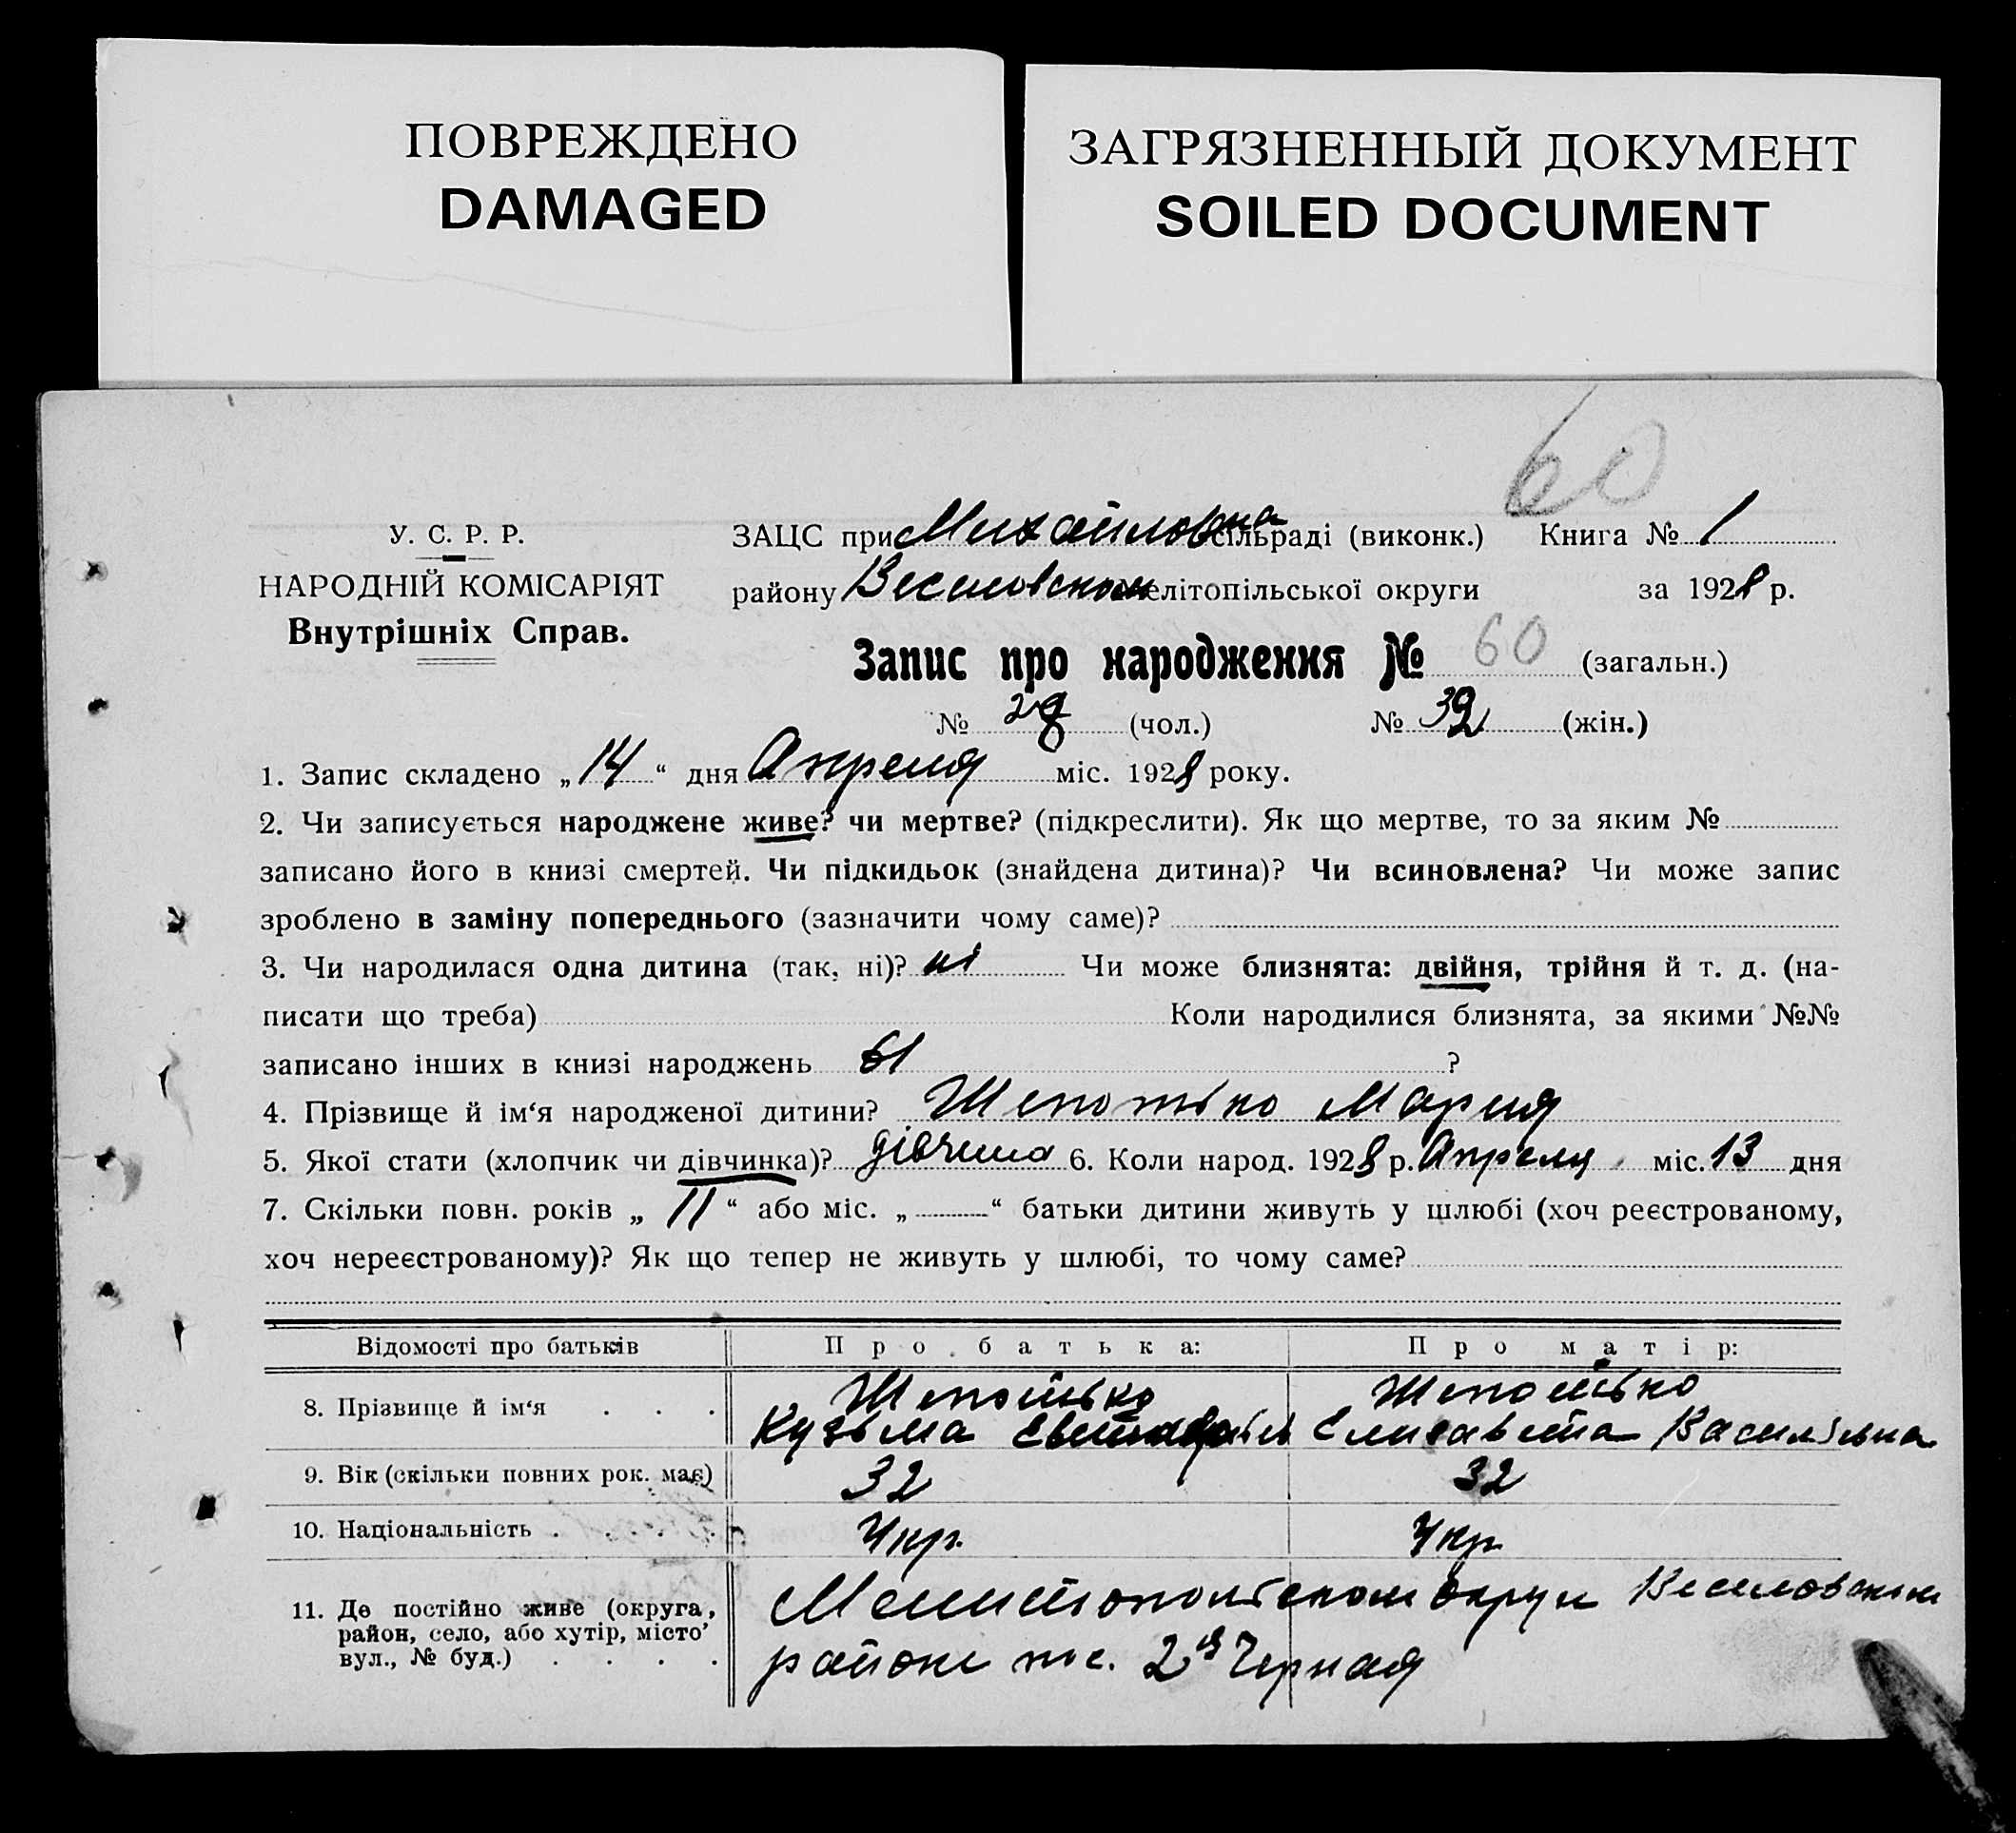 ПОВРЕЖДЕНО
DAMAGED
ЗАГРЯЗНЕННЫЙ ДОКУМЕНТ
SOILED DOCUMENT
60
У. С. Р. Р.
НАРОДНІЙ КОМІСАРІЯТ
Внутрішніх Справ.
ЗАЦС при Михайловска сільраді (виконк.) Книга № 1
району Веселовском Мелітопільської округи за 1928 р.
Запис про народження № 60 (загальн.)
№ 28 (чол.) № 32 (жін.)
1. Запис складено „14“ дня Апреля міс. 1928 року.
2. Чи записується народжене живе? чи мертве? (підкреслити). Як що мертве, то за яким №
записано його в книзі смертей. Чи підкидьок (знайдена дитина)? Чи всиновлена? Чи може запис
зроблено в заміну попереднього (зазначити чому саме)?
3. Чи народилася одна дитина (так, ні)? ні Чи може близнята: двійня, трійня й т. д. (на-
писати що треба) Коли народилися близнята, за якими №№
записано інших в книзі народжень 61 ?
4. Прізвище й ім‘я народженої дитини? Шепотько Мария
5. Якої стати (хлопчик чи дівчинка)? дівчина 6. Коли народ. 1928 р. Апреля міс. 13 дня
7. Скільки повн. років „11“ або міс. „ “ батьки дитини живуть у шлюбі (хоч реєстрованому,
хоч нереєстрованому)? Як що тепер не живуть у шлюбі, то чому саме?
Відомості про батьків Про батька: Про матір:
8. Прізвище й ім‘я . . . Шепотько Шепотько
Кузьма Елисавета
9. Вік (скільки повних рок. має) 32 32
10. Національність . . . . . Укр. Укр
11. Де постійно живе (округа, Мелитопольском округи Веселовским
район, село, або хутір, місто
вул., № буд.) . . . . районе 2я Черная